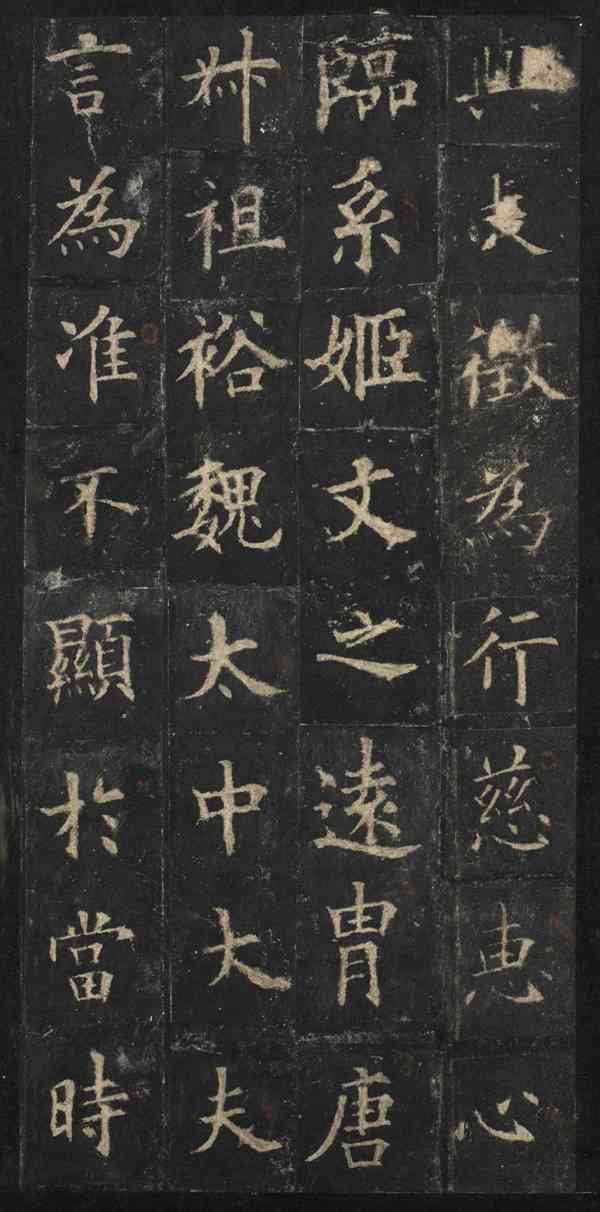 典徵為行慈惠心
臨系姬文之遠冑唐
叔祖裕魏太中大夫
言為准不顯於當時